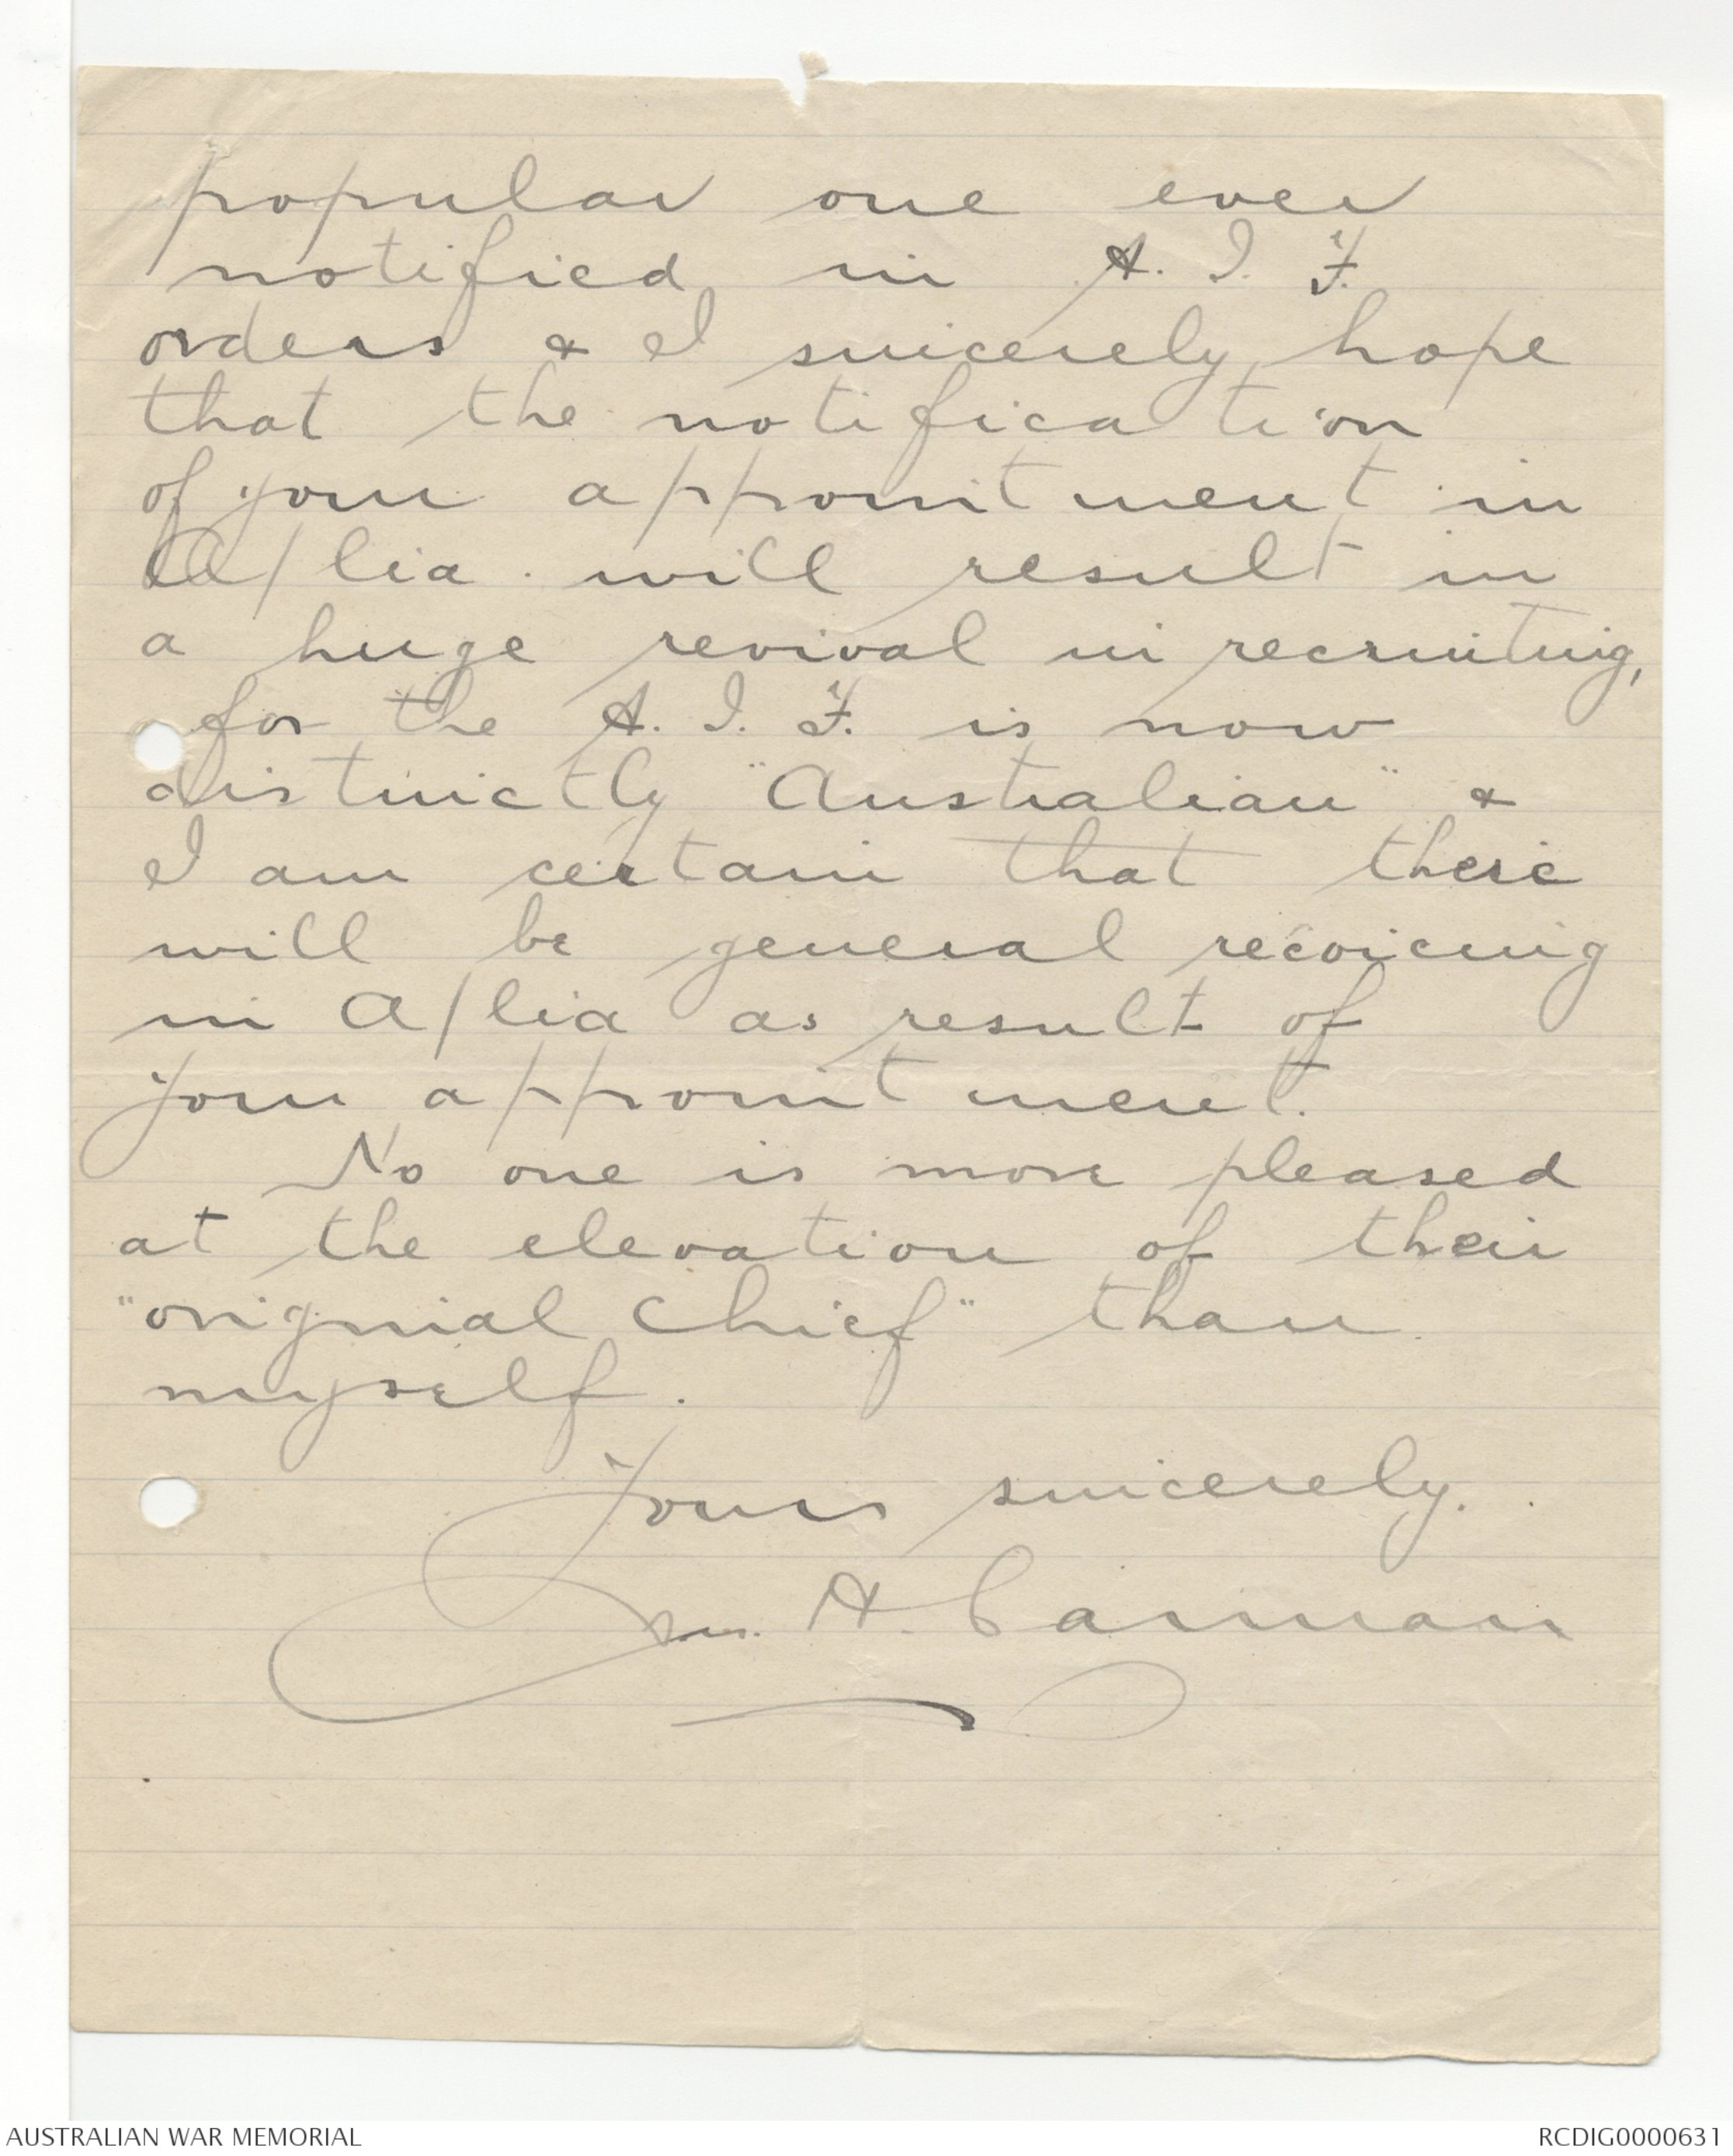 popular one ever
notified in A. I. F.
orders & I sincerely hope
that the notification
of your appointment in
A/lia. will result in
a huge revival in recruiting,
for the A. I. F. is now
distinctly "Australian" &
I am certain that there
will be general recoicing
in A/lia as result of
your appointment.
No one is more pleased
at the elevation of their
"original chief" than
myself.
Yours sincerely.
Wm. A. Carman
AUSTRALIAN WAR MEMORIAL
RCDIG0000631